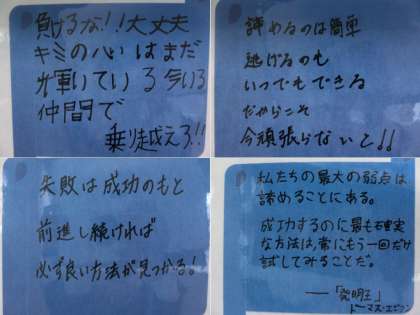 負けるな!!大丈夫
キミの心いはまだ
輝いている今いる
仲間で
乗り越えろ!!
諦めるのは簡単
逃げるのも
いつでもできる
だからこそ
今頑張らないと!!
失敗は成功のもと
前進し続ければ
必ず良い方法が見つかる!
私たちの最大の弱点は
諦めることにある。
成功するのに最も確実
な方法は、常にもう一回だけ
試してみることだ。
――「発明王」
トーマス・エジソン